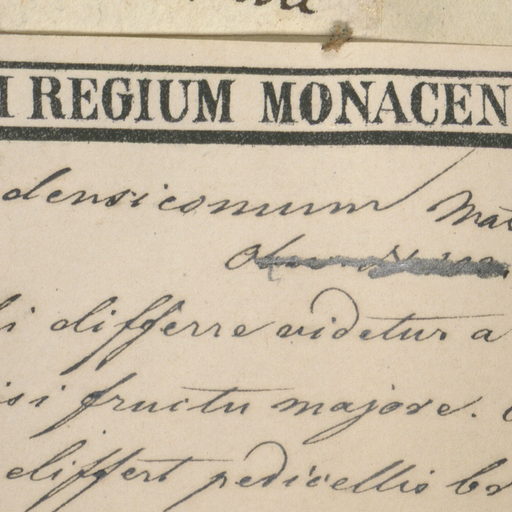 M REGIUM MONACEN
densicomum Mar
li differre videtur a
isi fructu majore.
differt pedicellis br